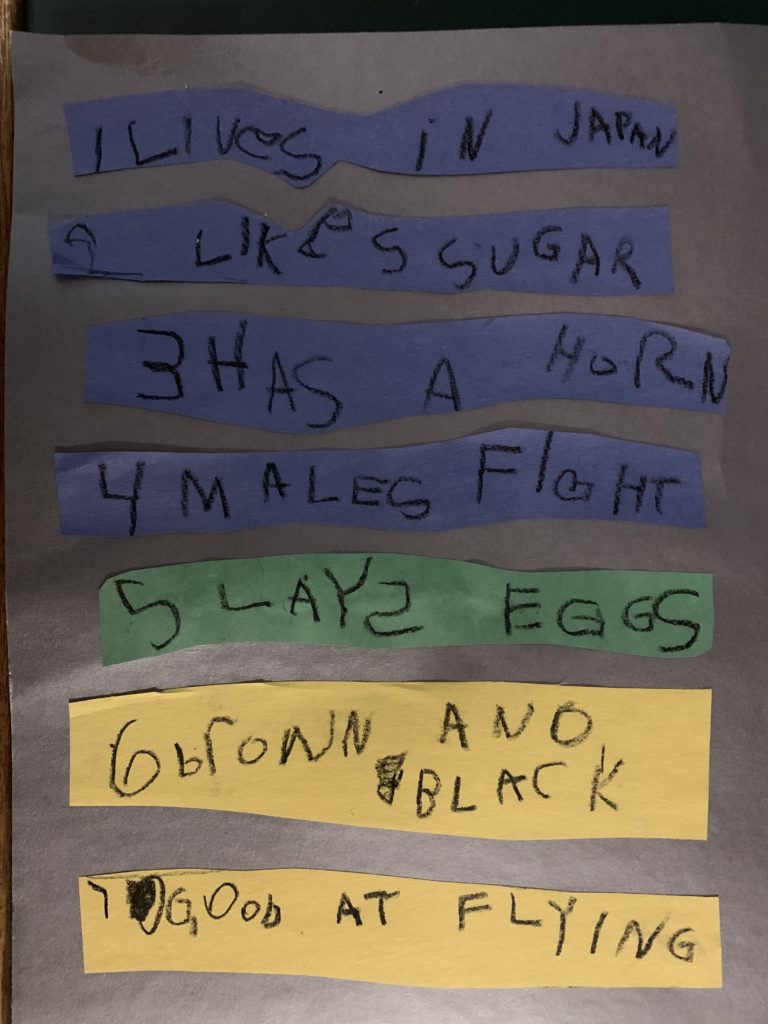 1 LIVES iN JAPAN
2 LIKeS SUGAR
3 HAS A HoRN
4 MALES FIGHT
5 LAYS EGGS
6 brOWN AND
BLACK
7 GOOD AT FLYING